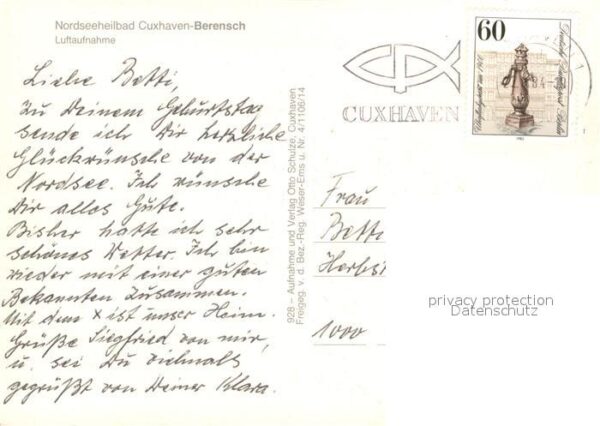 Nordseeheilbad Cuxhaven-Berensch
Luftaufnahme
Liebe Betti,
zu Deinem Geburtstag
sende ich Dir herzliche
Glückwünsche von der
Nordsee. Ich wünsche
Dir alles Gute.
Bisher hatte ich sehr
schönes Wetter. Ich bin
wieder mit einer guten
Bekannten zusammen.
Mit dem x ist unser Heim.
Grüße Siegfried von mir,
u. sei Du vielmals
gegrüßt von Deiner Klara.
928 – Aufnahme und Verlag Otto Schulze, Cuxhaven
Freigeg. v. d. Bez.-Reg. Weser-Ems u. Nr. 4/1106/14
CUXHAVEN
60
Frau
Betti
Herbst
1000
privacy protection
Datenschutz